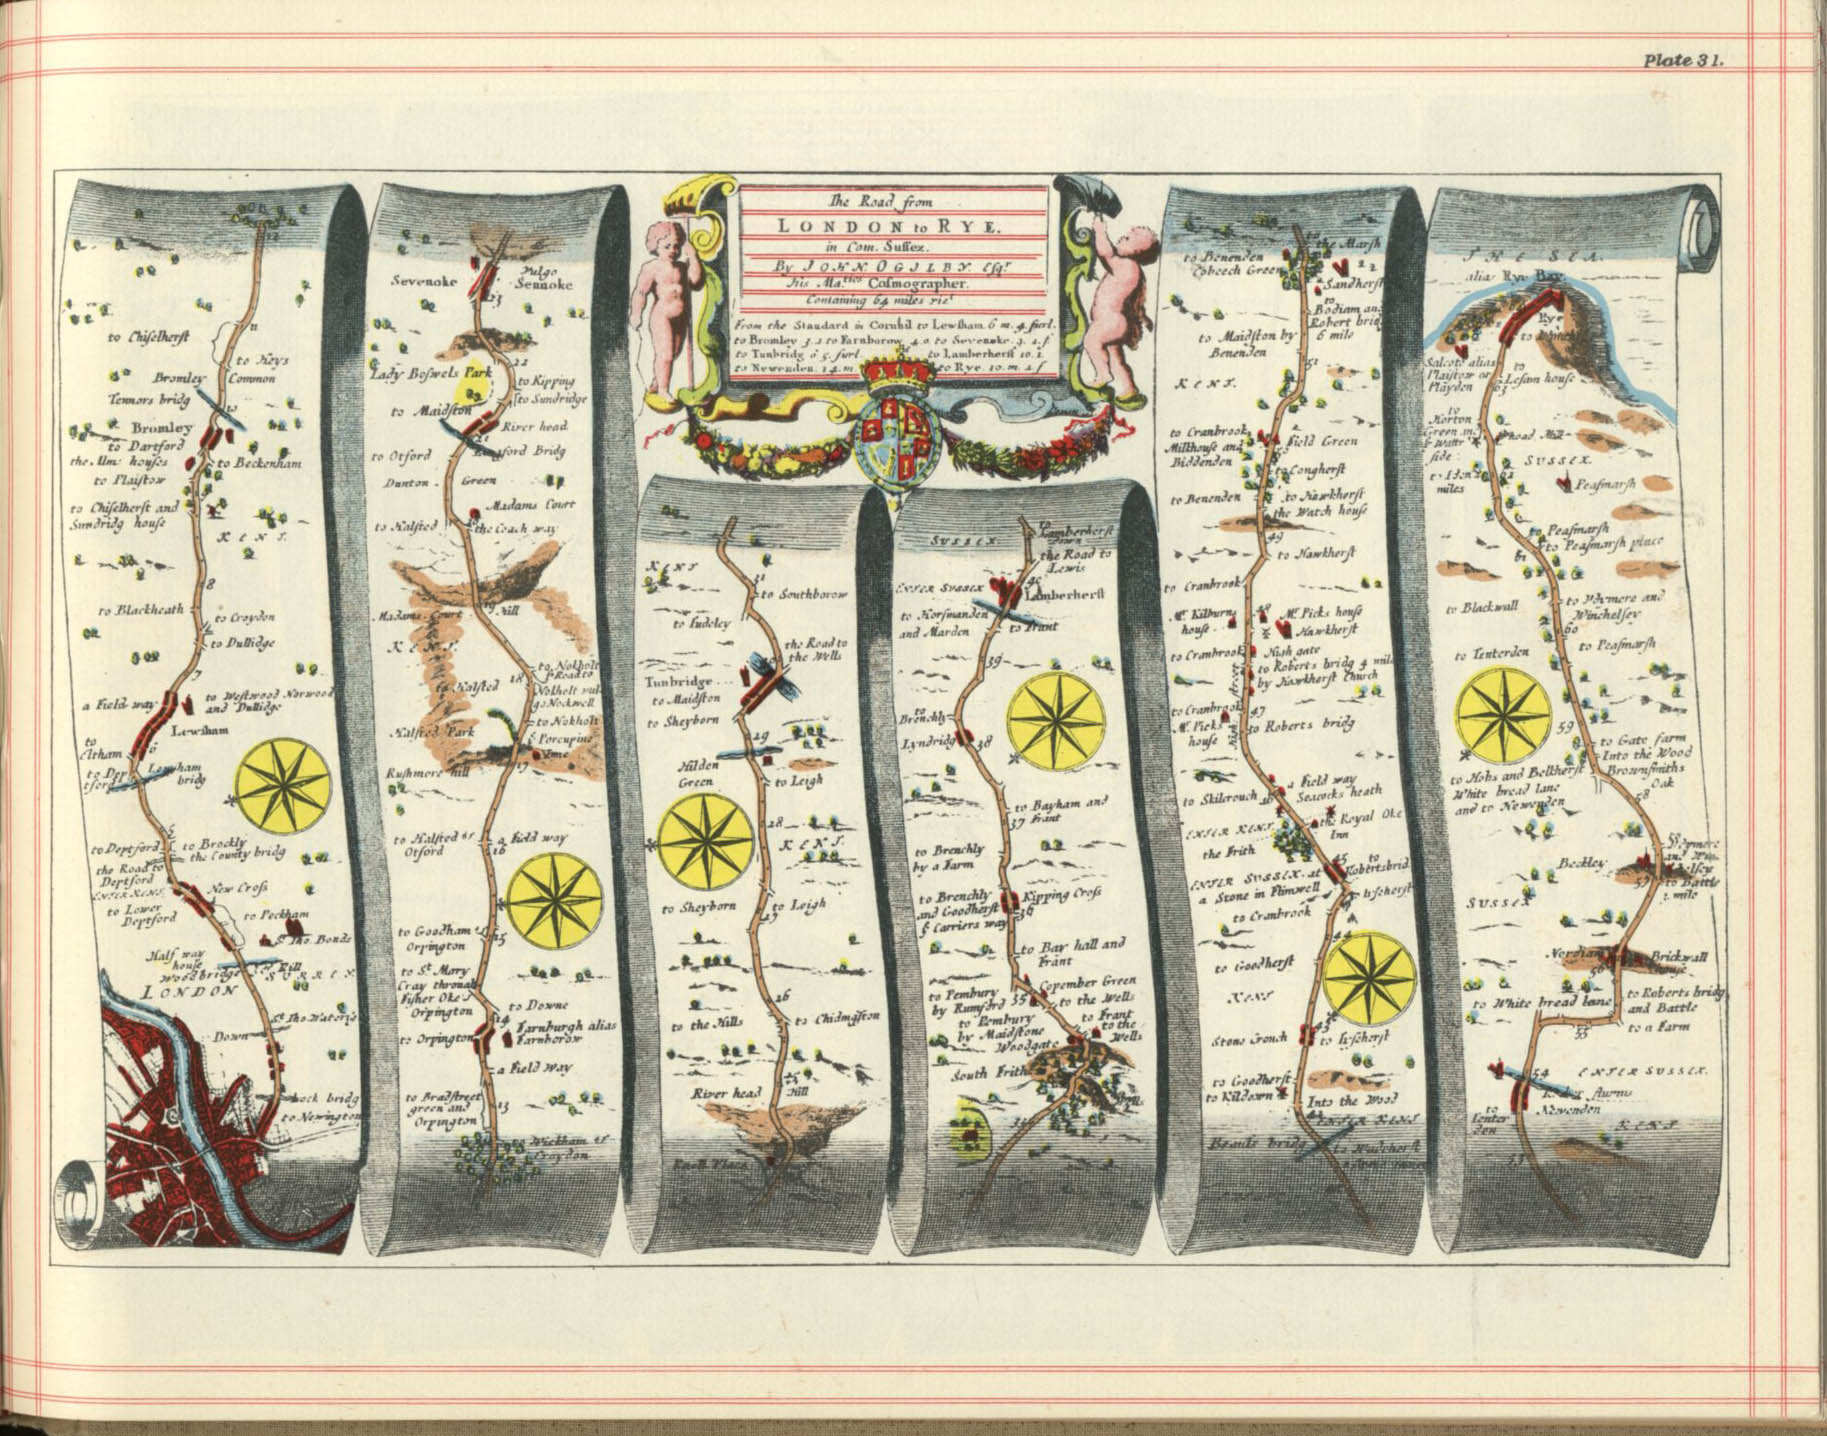 Plate 31.
The Road from
LONDON to RYE.
in Com. Suſſex.
By JOHN OGILBY Eſqr
His Maties Coſmographer.
Containing 64 miles vizt
From the Standard in Cornhil to Lewſham 6 m. 4 furl.
to Bromley 3.
to Farnborow 4.0
to Sevenoke
to Tunbridg 6 5. furl.
to Lamberherſt 10.1
to Newenden. 14 m
to Rye. 10. m.
12
11
to Chiſelherſt
to Keys
Common
Bromley
Tennors bridg
10
Bromley
to Dartford
the Alm: houſes
to Beckenham
to Plaiſtow
to Chiſelherſt and
Sundridg houſe
KENT.
8
to Blackheath
to Croydon
to Dullidge
7
a Field way
to Weſtwood Norwood
and Dullidge
Lewſham
6
to
Eltham
Lewſham
bridg
to Dep
tford
5
to Deptford
to Brockly
the County bridg
the Road to
Deptford
ENTER KENT.
New Croſs
to Lower
Deptford
to Peckham
St. Tho. Bonds
Half way
houſe
Woodbridge
Rill
SURREY
LONDON
St. Tho. Waterīs
Down
Lock bridg
to Newington
Sevenoke
Vulgo
Sennoke
23
22
Lady Boſwels Park
to Kipping
to Sundridge
to Maidſton
River head
21
Longford Bridg
to Otford
Dunton
Green
Madams Court
to Halſted
the Coach way
Madams Court
19
Hill
KENT.
to Nokholt
Road to
Nokholt vul
go Nockwell
18
to Halſted
to Nokholt
Halſted Park
ye Porcupine
Inne
17
Ruſhmore hill
to Halſted &
Otford
a Field way
16
to Goodham &
Orpington
15
to St. Mary
Cray through
Fiſher Oke &
Orpington
to Downe
14
Farnburgh alias
Farnborow
to Orpington
a Field way
to Bradſtreet
green and
Orpington
13
to Wickham &
Croydon
KENT
31
to Southborow
to Tudeley
the Road to
the Wells
30
Tunbridge
to Maidſton
to Sheyborn
29
Hilden
Green
to Leigh
28
KENT.
to Sheyborn
to Leigh
27
26
to the Hills
to Chidingſton
25
River head
Hill
Knoll Place
SUSSEX
Lamberherſt
Down
the Road to
Lewis
ENTER SUSSEX
40
Lamberherſt
to Horſmanden
and Marden
to Frant
39
to
Brenchly
Lyndridg
38
to Bayham and
Frant
37
to Brenchly
by a Farm
to Brenchly
and Goodherſt
ye Carriers way
Kipping Croſs
36
to Bay hall and
Frant
to Pembury
by Rumford
Copember Green
35
to the Wells
to Pembury
by Maidſtone
to Frant
to the
Wells
Woodgate
South Frith
the Marſh
to Benenden
Cobeech Green
Sandherſt
to
Bodiam and
Robert bridg
6 mile
to Maidſton by
Benenden
51
KENT.
to Cranbrook
Milkhouſe and
Biddenden
Field Green
to Congherſt
to Benenden
to Hawkherſt
the Watch houſe
49
to Hawkherſt
to Cranbrook
Mr. Kilburns
houſe
48
Mr. Picks houſe
Hawkherſt
to Cranbrook
High gate
to Roberts bridg 4 mile
by Hawkherſt Church
to Cranbrook
47
Mr. Picks
houſe
to Roberts bridg
High ſtreet
a Field way
Seacocks heath
to Skilcrouch
46
the Royal Oke
Inn
ENTER KENT.
the Frith
45
to
Robertsbridg
ENTER SUSSEX at
a Stone in Flimwell
to Tyſeherſt
to Cranbrook
44
to Goodherſt
KENT
43
Stone Crouch
to Tyſeherſt
to Goodherſt
to Kildown
Into the Wood
42
ENTER KENT
Beauls bridg
to Wadeherſt
THE SEA.
alia Rye Bay
Rye
to Winch
Salcote alias
Plaiſtow or
Playden
to
Leſam houſe
63
to
Horton
Green and
ye Water
ſide
Road Hill
SUSSEX.
to Iden
miles
62
Peaſmarſh
to Peaſmarſh
to Peaſmarſh place
61
to Blackwall
to Udymore and
Winchelſey
60
to Tenterden
to Peaſmarſh
59
to Gate farm
Into the Wood
Brownſmiths
Oak
to Hobs and Belkherſt
White bread lane
and to Newenden
58
to Udymore
and Win
chelſey
Beckley
57
to Battle
2 mile
SUSSEX
Nordiam
Brickwall
houſe
56
to White bread lane
to Roberts bridg
and Battle
55
to a Farm
54
ENTER SUSSEX.
Newenden
to
Tenter
den
KENT
53